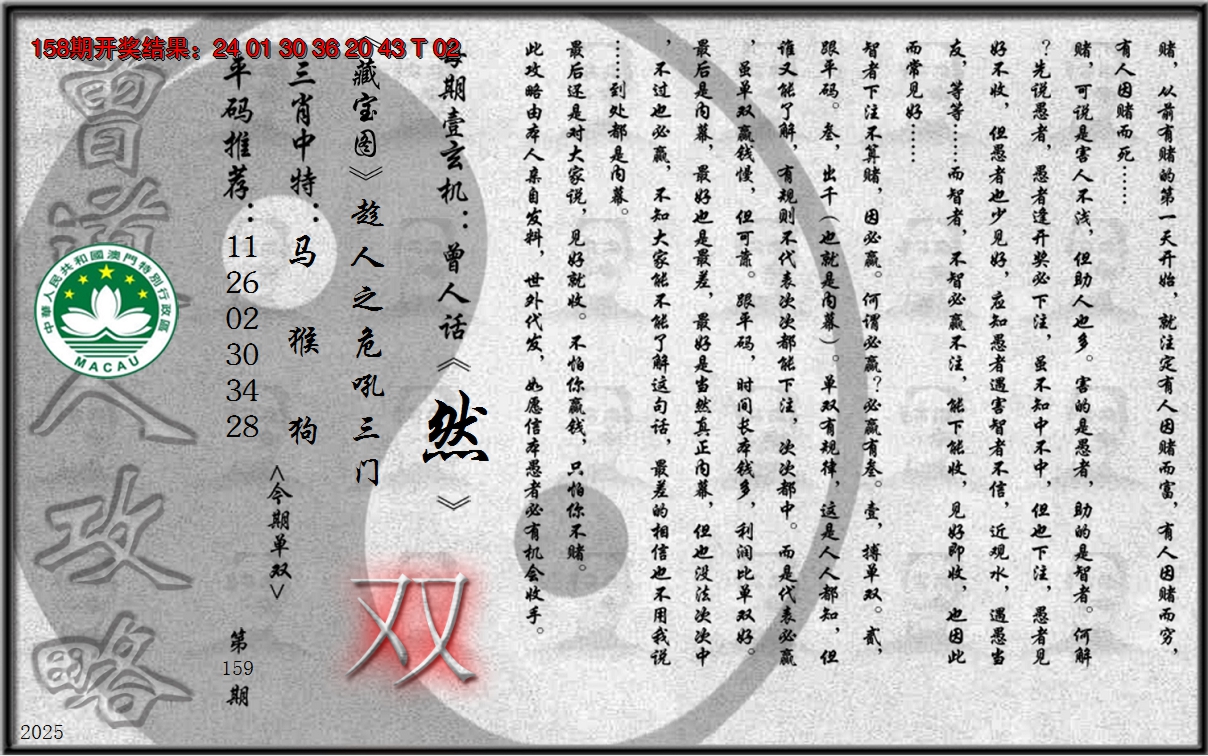 158期开奖结果：24 01 30 36 20 43 T 02
赌，从前有赌的第一天开始，就注定有人因赌而富，有人因赌而穷，
有人因赌而死……
赌，可说是害人不浅，但助人也多。害的是愚者，助的是智者。何解
？先说愚者，愚者逢开奖必下注，虽不知中不中，但也下注，愚者见
好不收，但愚者也少见好，应知愚者遇害智者不信，近观水，遇愚当
友，等等……而智者，不智必赢不注，能下能收，见好即收，也因此
而常见好……
智者下注不算赌，因必赢。何谓必赢？必赢有叁。壹，搏单双。贰，
跟平码。叁，出千（也就是内幕）。单双有规律，这是人人都知，但
谁又能了解，有规则不代表次次都能下注，次次都中。而是代表必赢
，虽单双赢钱慢，但可靠。跟平码，时间长本钱多，利润比单双好。
最后是内幕，最好也是最差，最好是当然真正内幕，但也没法次次中
，不过也必赢，不知大家能不能了解这句话，最差的相信也不用我说
……到处都是内幕。
最后还是对大家说，见好就收。不怕你赢钱，只怕你不赌。
此攻略由本人亲自发料，世外代发，如愿信本愚者必有机会收手。
每期壹玄机：曾人话《然》
《藏宝图》趁人之危吼三门
双
三肖中特：马 猴 狗
<今期单双>
平码推荐：
11
26
02
30
34
28
第
159
期
曾道人攻略
中華人民共和國澳門特別行政區
MACAU
2025